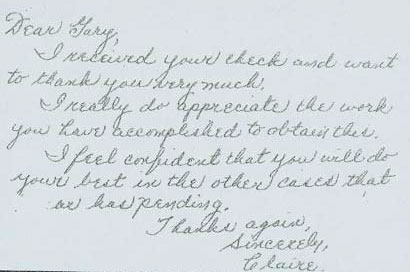 Dear Gary,
I received your check and want
to thank you very much.
I really do appreciate the work
you have accomplished to obtain this.
I feel confident that you will do
your best in the other cases that
are has pending.
Thanks again,
Sincerely,
Claire